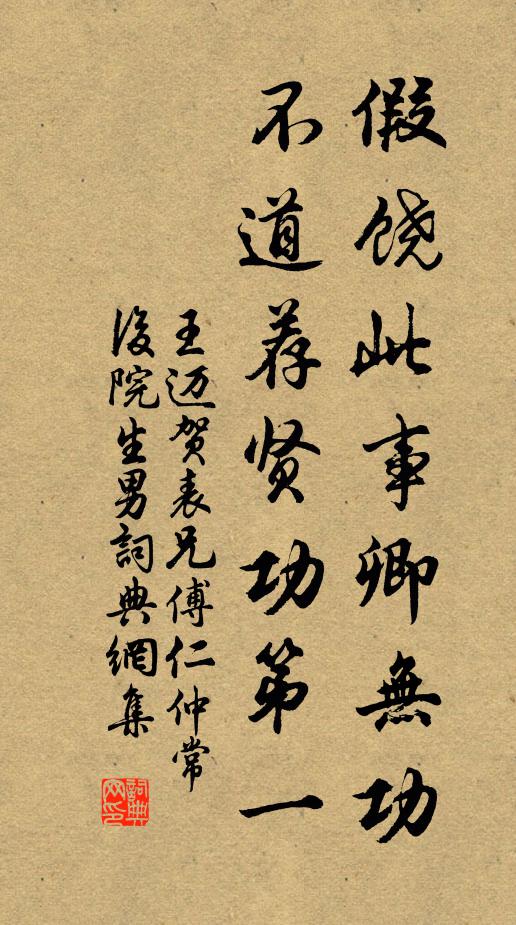 假饶此事卿無功
不道荐贤功第一
王迈贺表兄傅仁仲常
後院生男詞典網集
詞典网印